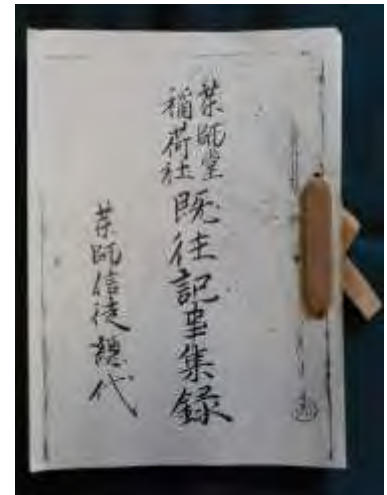 薬師堂
稲荷社
既往記事集録
薬師信徒總代